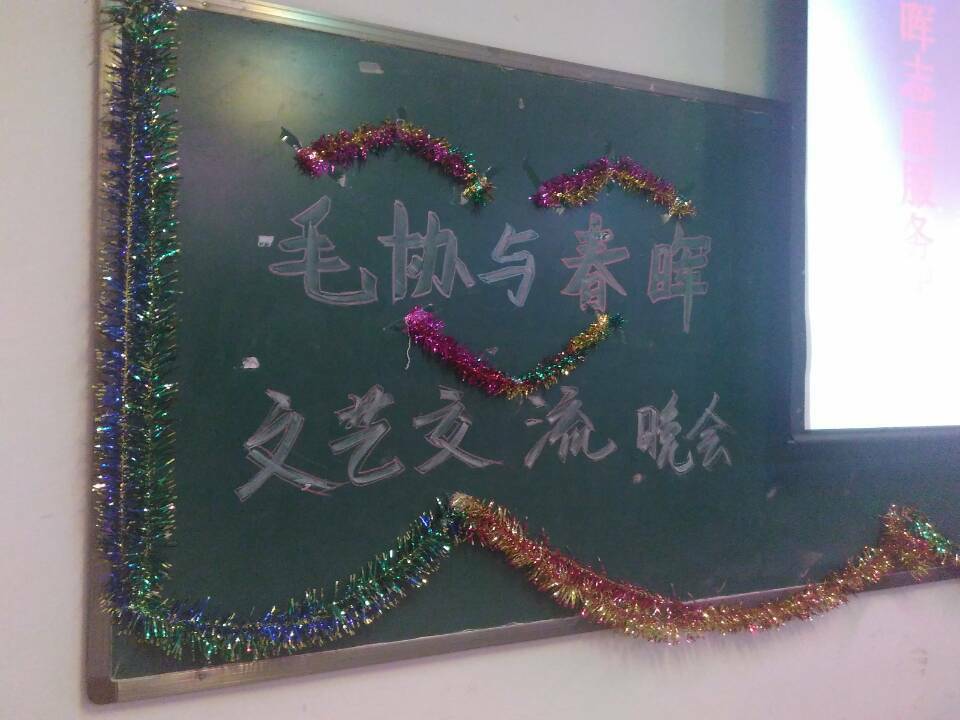 毛协与春晖
文艺交流晚会
晖志愿服务